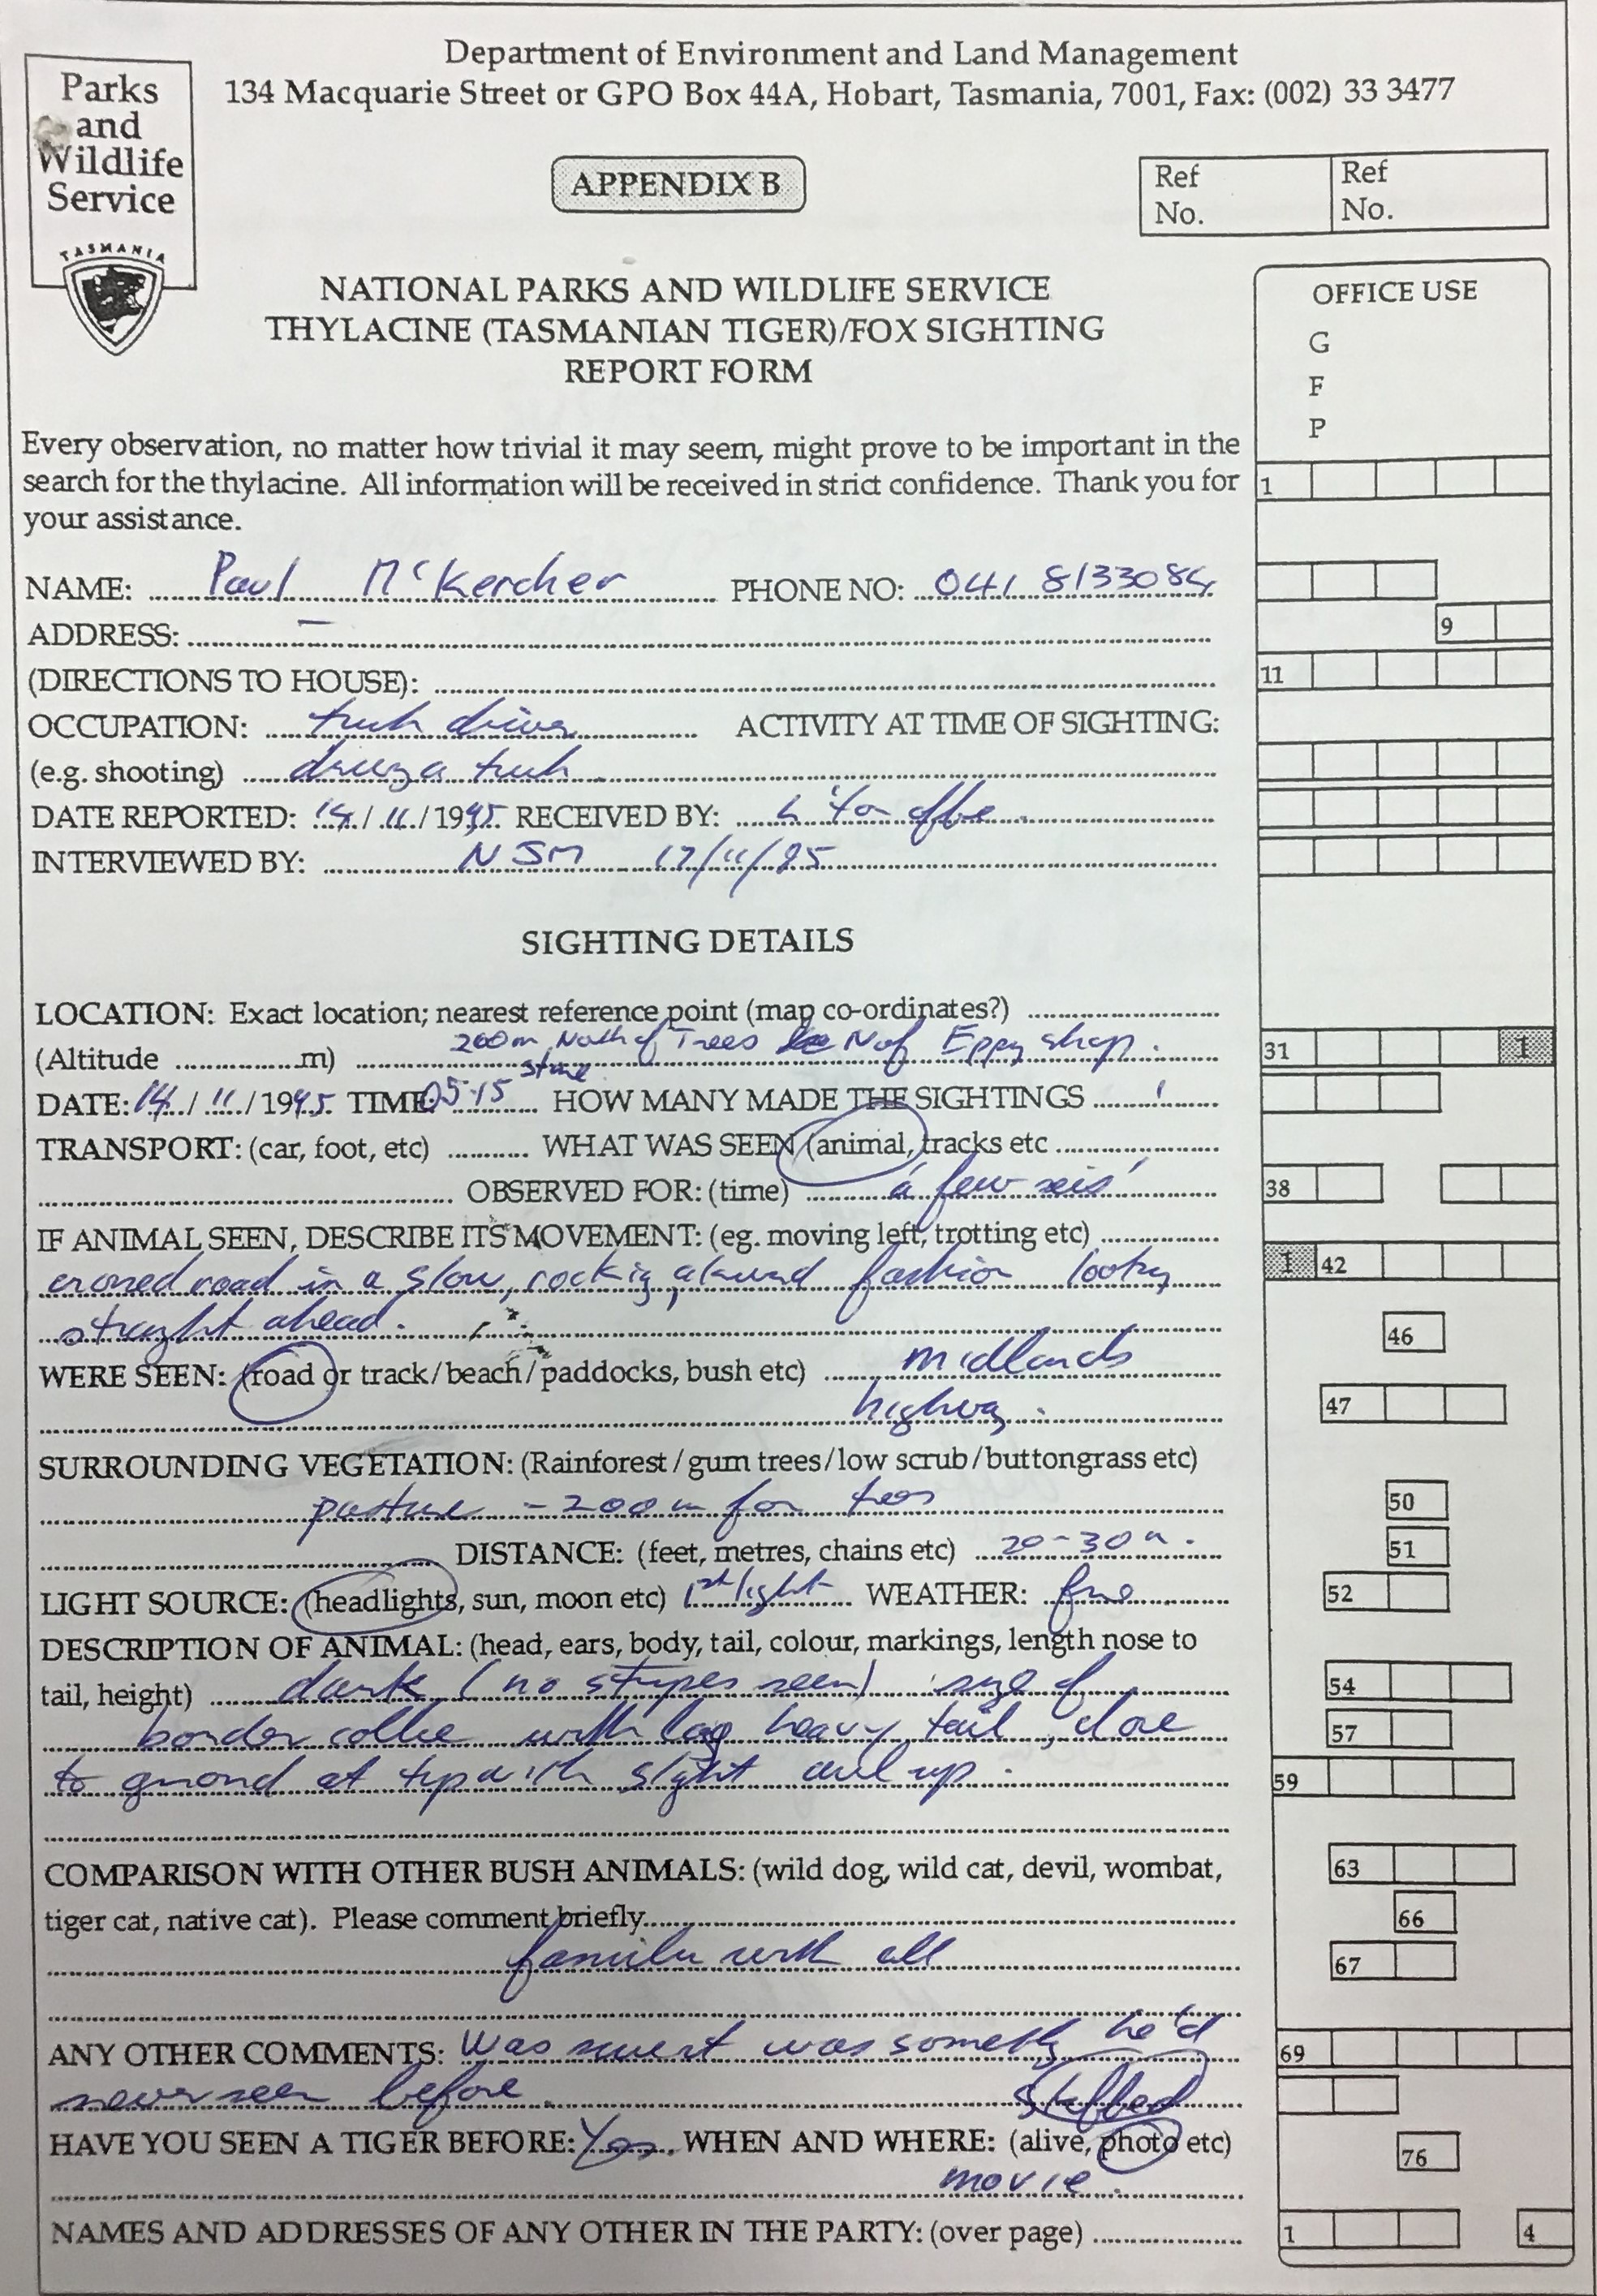 Department of Environment and Land Management
134 Macquarie Street or GPO Box 44A, Hobart, Tasmania, 7001, Fax: (002) 33 3477
Parks
and
Wildlife
Service
TASMANIA
APPENDIX B
Ref No.
Ref No.
NATIONAL PARKS AND WILDLIFE SERVICE
THYLACINE (TASMANIAN TIGER)/FOX SIGHTING
REPORT FORM
OFFICE USE
G
F
P
Every observation, no matter how trivial it may seem, might prove to be important in the
search for the thylacine. All information will be received in strict confidence. Thank you for
1
your assistance.
NAME: Paul McKercher PHONE NO: 041 8133084
ADDRESS: –
9
(DIRECTIONS TO HOUSE):
11
OCCUPATION: truck driver ACTIVITY AT TIME OF SIGHTING:
(e.g. shooting) driving a truck
DATE REPORTED: 14/11/1995 RECEIVED BY:
INTERVIEWED BY: NJM 17/11/95
SIGHTING DETAILS
LOCATION: Exact location; nearest reference point (map co-ordinates?)
(Altitude m) 200m North of Trees N of Eppy shop.
31 1
DATE: 14/11/1995 TIME: 0515 HOW MANY MADE THE SIGHTINGS 1
TRANSPORT: (car, foot, etc) WHAT WAS SEEN (animal, tracks etc
OBSERVED FOR: (time) 'a few secs'
38
IF ANIMAL SEEN, DESCRIBE ITS MOVEMENT: (eg. moving left, trotting etc)
crossed road in a slow, rocking, awkward fashion looking
1 42
straight ahead.
46
WERE SEEN: (road or track/beach/paddocks, bush etc) midlands
highway.
47
SURROUNDING VEGETATION: (Rainforest/gum trees/low scrub/buttongrass etc)
pasture - 200m from trees
50
DISTANCE: (feet, metres, chains etc) 20-30m.
51
LIGHT SOURCE: (headlights, sun, moon etc) 1st light WEATHER: fine
52
DESCRIPTION OF ANIMAL: (head, ears, body, tail, colour, markings, length nose to
tail, height) dark (no stripes seen) size of
54
border collie with long heavy tail, close
57
to ground at tip with slight curl up.
59
COMPARISON WITH OTHER BUSH ANIMALS: (wild dog, wild cat, devil, wombat,
63
tiger cat, native cat). Please comment briefly
66
familiar with all
67
ANY OTHER COMMENTS: Was was something he'd
69
never seen before.
stuffed
HAVE YOU SEEN A TIGER BEFORE: Yes. WHEN AND WHERE: (alive, photo etc)
76
movie.
NAMES AND ADDRESSES OF ANY OTHER IN THE PARTY: (over page)
1 4